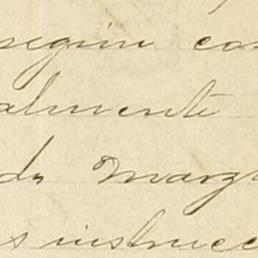 segun con
almente
da Marg
s instrucc